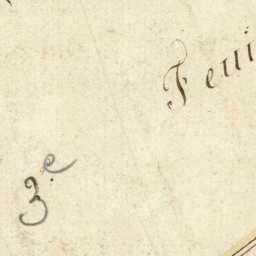 Feui
3.e